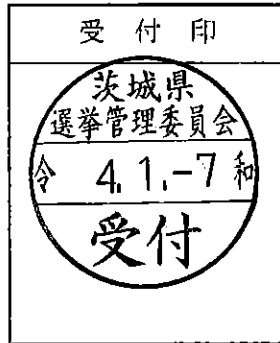 受付印
茨城県
選挙管理委員会
令 4.1.-7 和
受付